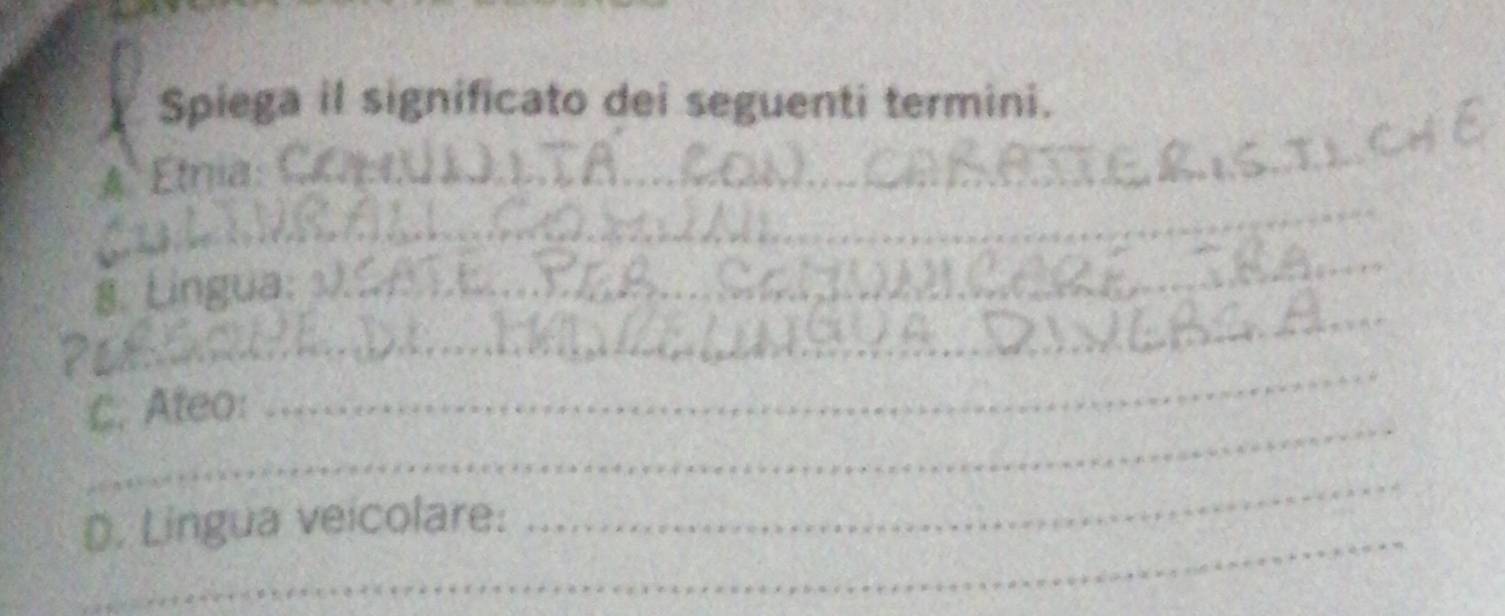 Spiega il significato dei seguenti termini.
A. Etnia: COMUNITÀ CON CARATTERISTICHE
CULTURALI COMUNI
B. Lingua: USATE PER COMUNICARE TRA
PERSONE DI MADRELINGUA DIVERSA
C. Ateo:
D. Lingua veicolare: